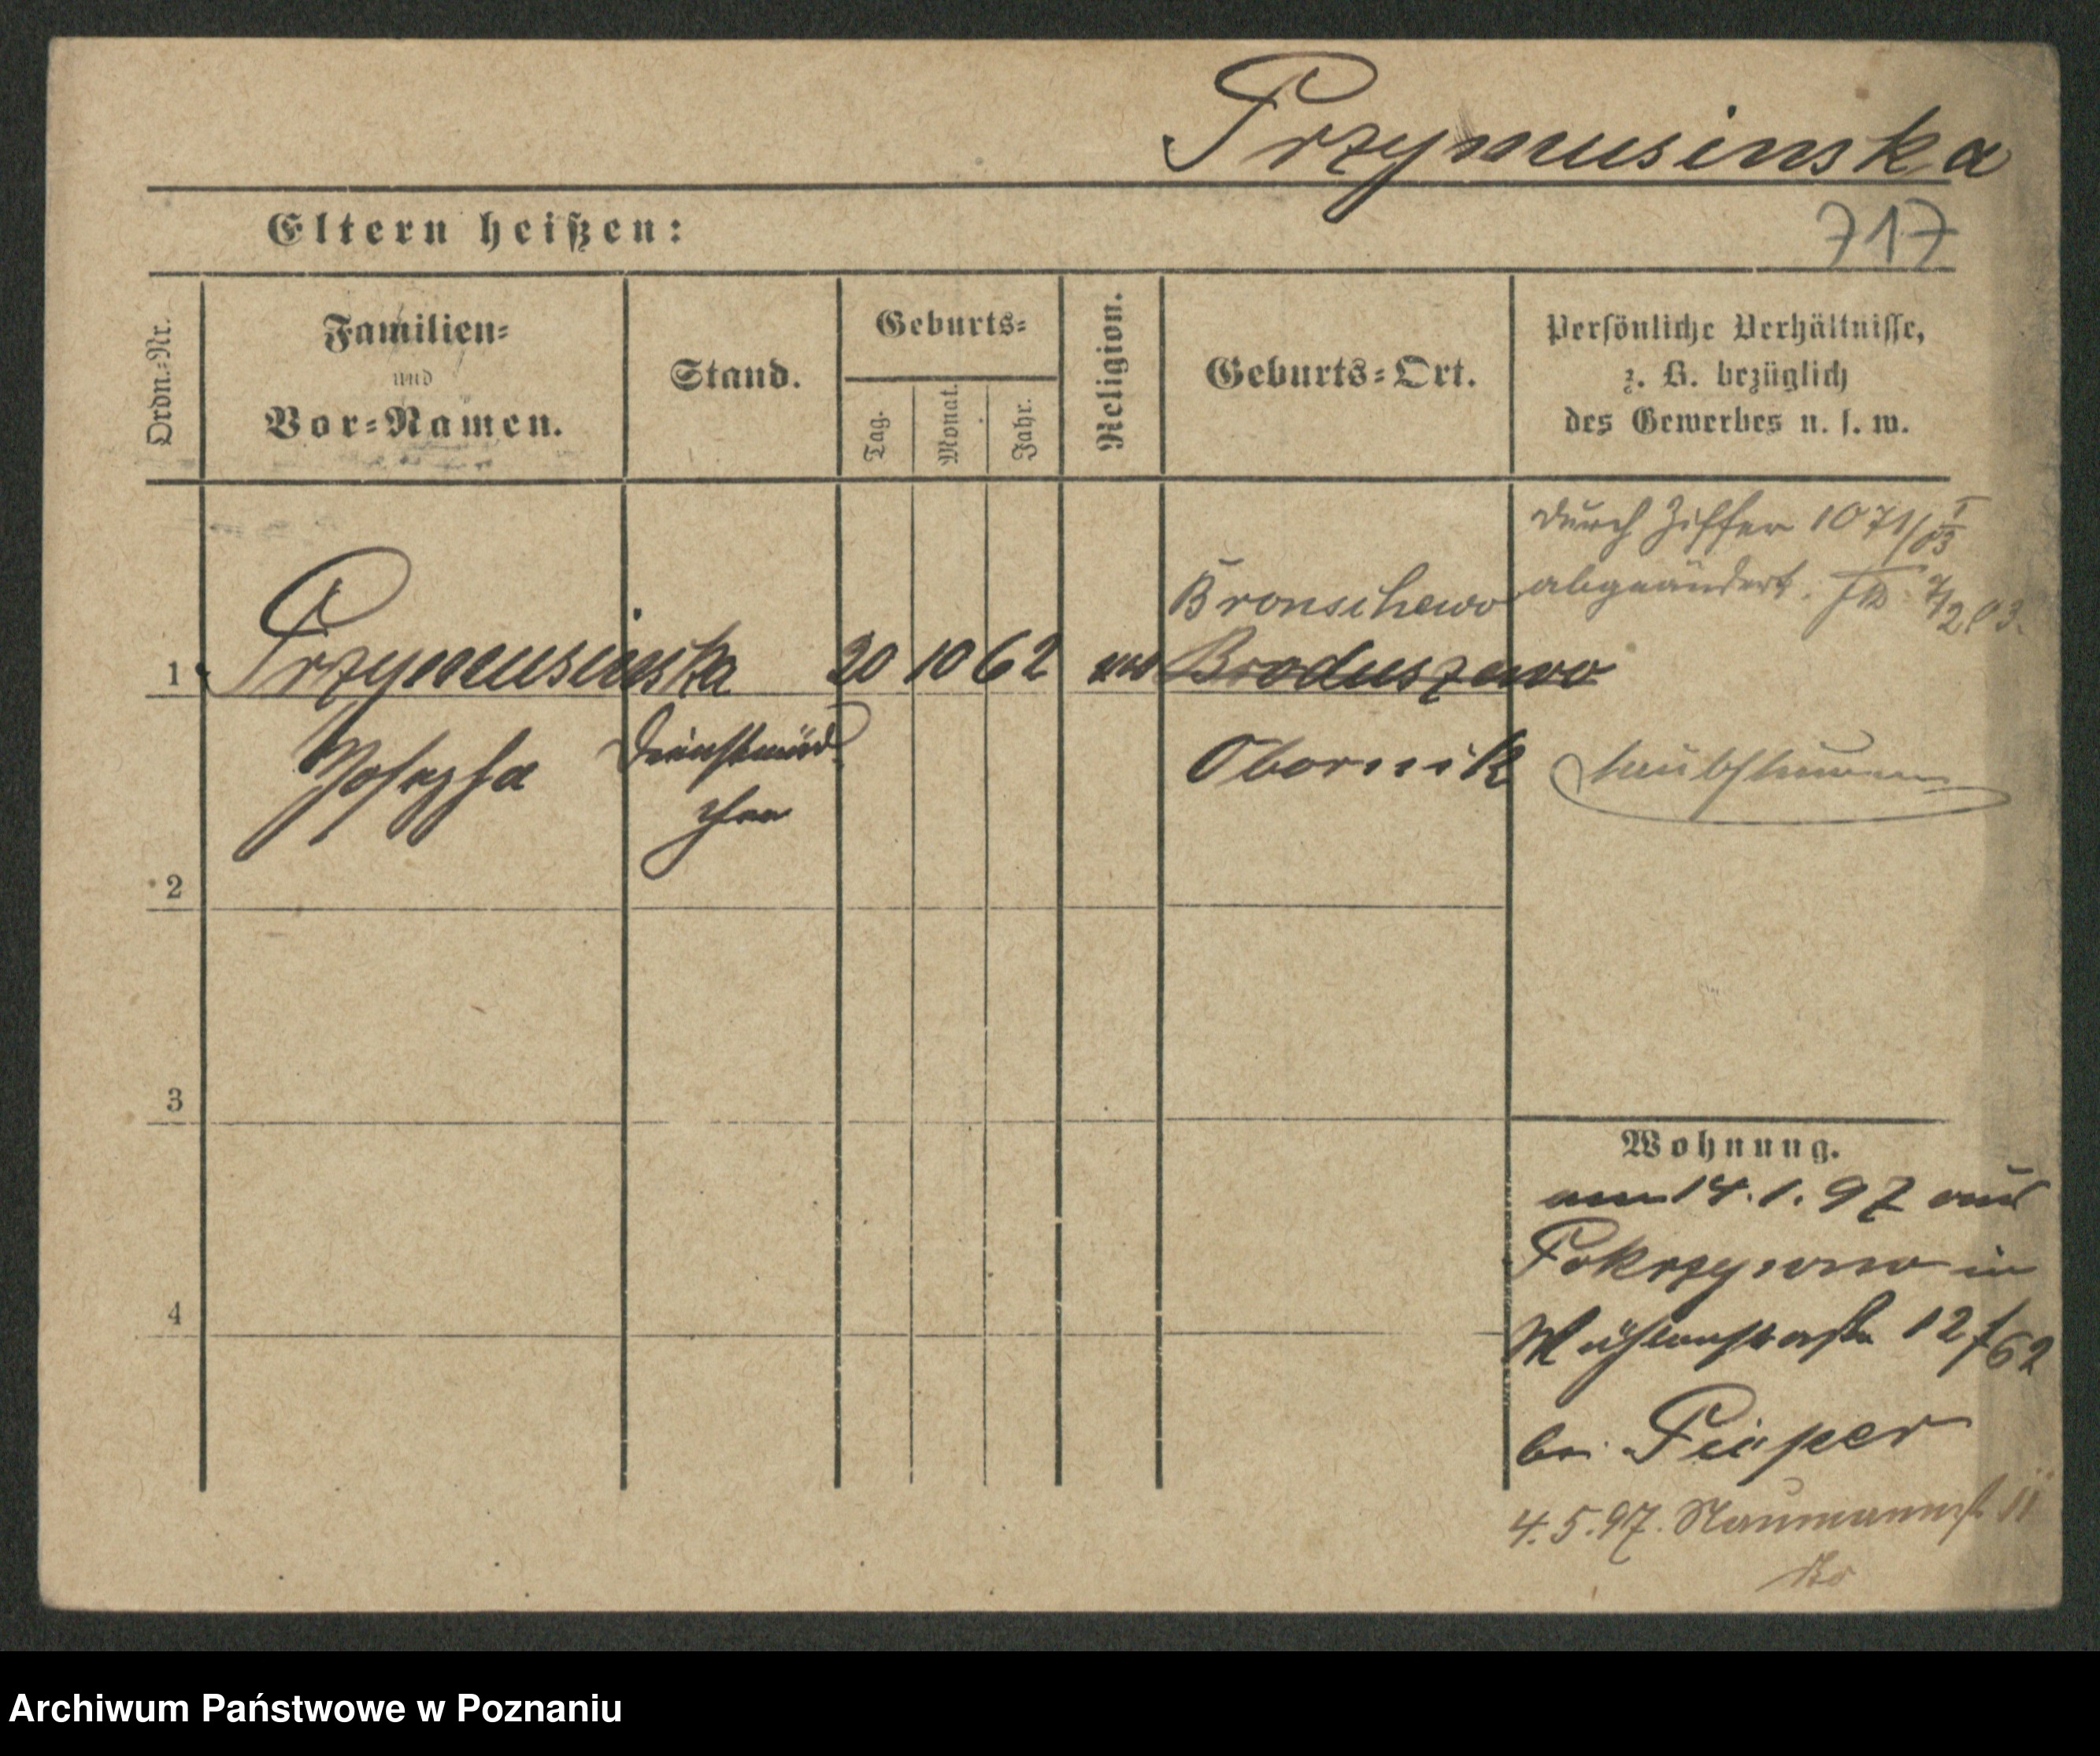 Przymusinska
717
Eltern heißen:
Ordn.-Nr.
Familien-
und
Vor-Namen.
Stand.
Geburts-
Tag.
Monat.
Jahr.
Religion.
Geburts-Ort.
Persönliche Verhältnisse,
z. B. bezüglich
des Gewerbes u. s. w.
durch Ziffer 1071/I 03
abgeändert. 2/2 03.
Bronschewo
1 Przymusinska 20 10 62 Broduszewo
Josepha Dienstmäd
chen
Obornik taubstumm
2
3
4
Wohnung.
am 14.1.97 aus
Pokrzywno in
Mühlenstraße 12/62
bei Pieper
4.5.97. Naumannst 11
Archiwum Państwowe w Poznaniu